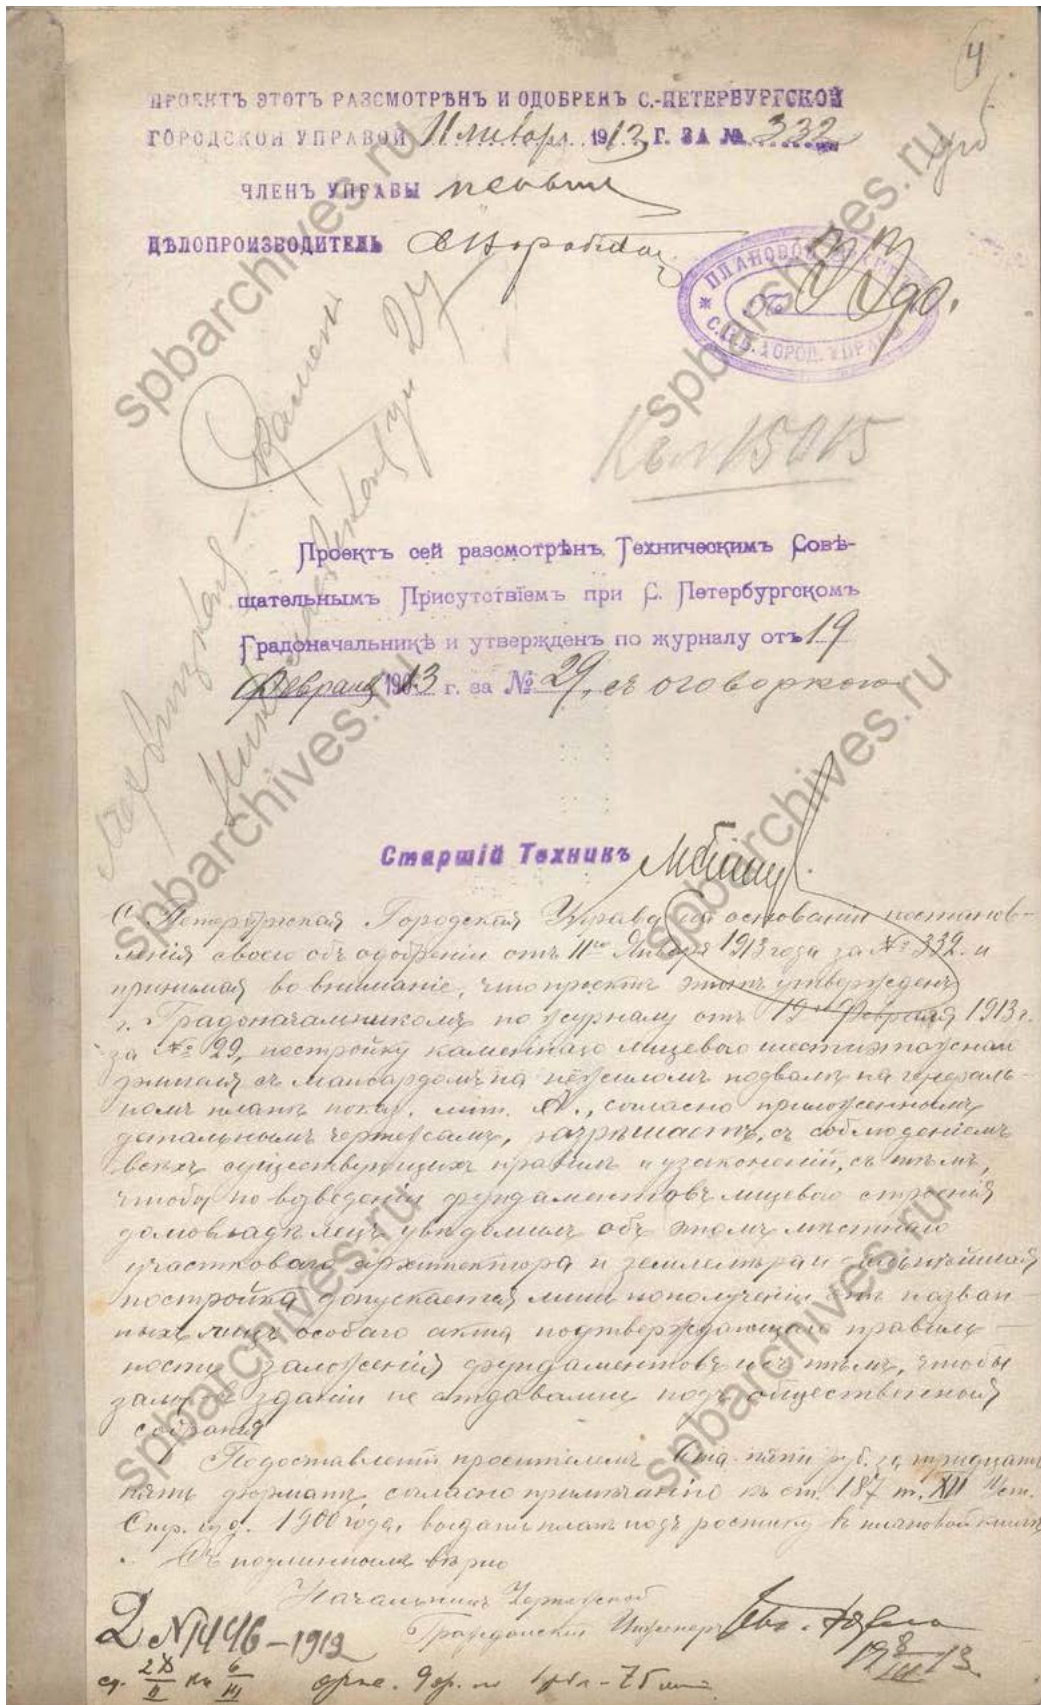 4
ПРОЕКТЪ ЭТОТЪ РАЗСМОТРѢНЪ И ОДОБРЕНЪ С.-ПЕТЕРБУРГСКОЙ
ГОРОДСКОЙ УПРАВОЙ 11 января 1913 Г. ЗА № 332
ЧЛЕНЪ УПРАВЫ
ДѢЛОПРОИЗВОДИТЕЛЬ
ПЛАНОВОЙ
С.П.Б. ГОРОД. УПРАВ
27
Къ № 15015
Проектъ сей разсмотрѣнъ Техническимъ Совѣ-
щательнымъ Присутствіемъ при С. Петербургскомъ
Градоначальникѣ и утвержденъ по журналу отъ 19
Февраля 1913 г. за № 29, съ оговоркою
Старшій Техникъ
С Петербуржская Городская Управа на основаніи постанов-
ленія своего объ одобреніи отъ 11го Января 1913 года за № 332. и
принимая во вниманіе, что проектъ этотъ утвержденъ
г. Градоначальникомъ по журналу отъ 19го Февраля 1913 г.
за № 29, постройку каменнаго лицевого шестиэтажнаго
флигеля съ мансардомъ на нежиломъ подвалѣ на генераль-
номъ планѣ показ. лит. А., согласно приложеннымъ
детальнымъ чертежамъ, разрѣшаетъ, съ соблюденіемъ
всѣхъ существующихъ правилъ и узаконеній, съ тѣмъ,
чтобы по возведеніи фундаментовъ лицевого строенія
домовладѣлецъ увѣдомилъ объ этомъ мѣстнаго
участковаго архитектора и землемѣра и дальнѣйшая
постройка допускается лишь по полученіи отъ назван-
ныхъ лицъ особаго акта подтверждающаго правиль-
ность заложенія фундаментовъ и съ тѣмъ, чтобы
залы въ зданіи не отдавались подъ общественныя
собранія
По доставленіи просителемъ ста пяти руб. за тридцать
пять форматъ, согласно примѣчанію къ ст. 187 т. XII Уст.
Стр. изд. 1900 года, выдать планъ подъ росписку въ плановой книгѣ
Съ подлиннымъ вѣрно
Начальникъ Чертежной
Гражданскій Инженеръ
Д № 1446 - 1912